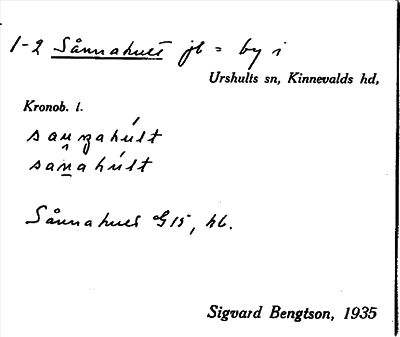 1-2 Sånnahult jb = by i
Urshults sn, Kinnevalds hd,
Kronob. l.
saṉahúlt
Sånnahult G15, hb.
Sigvard Bengtson, 1935